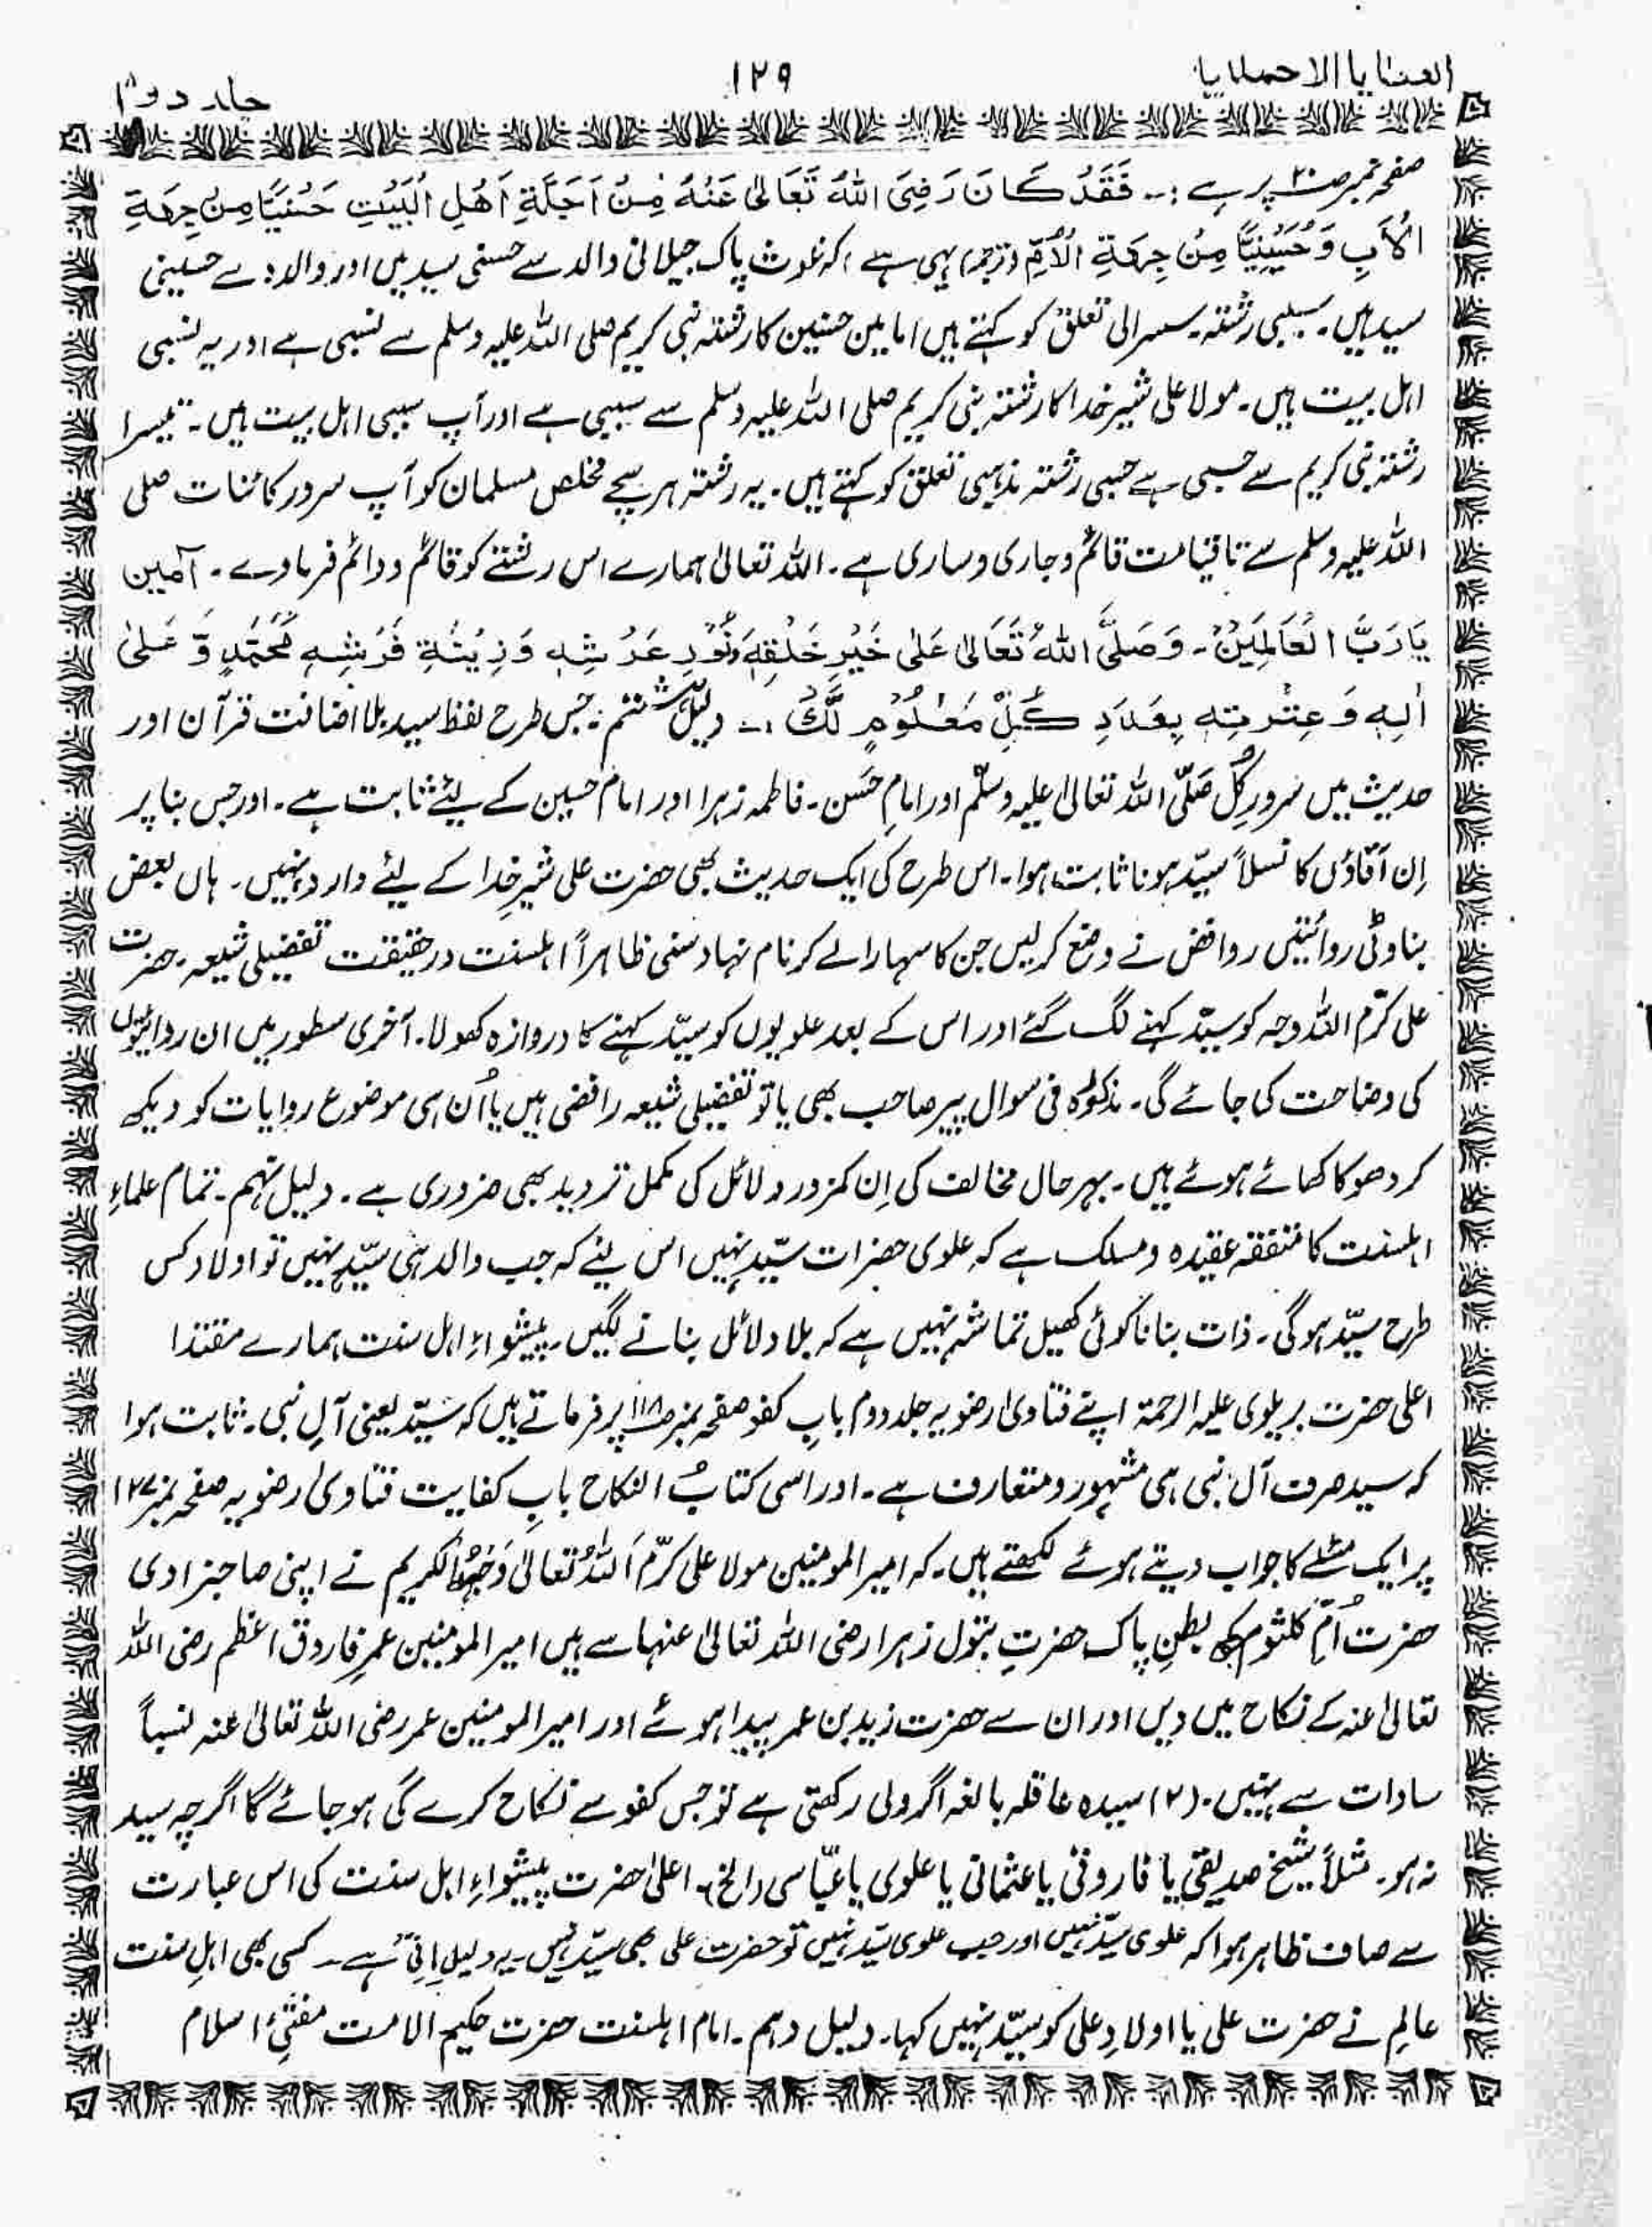 العطایا الاحمدیہ
۱۲۹
جلد دوم
صفحہ نمبر صـ۲۰ پر ہے :۔ فَقَدْ کَانَ رَضِیَ اللہُ تَعَالیٰ عَنْہُ مِنْ اَجَلَّۃِ اَھْلِ الْبَیْتِ حَسَنِیًّا مِنْ جِھَۃِ
الْاَبِ وَحُسَیْنِیًّا مِنْ جِھَۃِ الْاُمِّ (ترجمہ) یہی ہے، کہ غوث پاک جیلانی والد سے حسنی سید ہیں اور والدہ سے حسینی
سید ہیں۔ سببی رشتہ۔ سسرالی تعلق کو کہتے ہیں امامین حسنین کا رشتہ نبی کریم صلی اللہ علیہ وسلم سے نسبی ہے اور یہ نسبی
اہل بیت ہیں۔ مولا علی شیر خدا کا رشتہ نبی کریم صلی اللہ علیہ وسلم سے سببی ہے اور آپ سببی اہل بیت ہیں۔ تیسرا
رشتہ نبی کریم سے حسبی ہے حسبی رشتہ مذہبی تعلق کو کہتے ہیں۔ یہ رشتہ ہر سچے مخلص مسلمان کو آپ سرور کائنات صلی
اللہ علیہ وسلم سے تاقیامت قائم و جاری و ساری ہے۔ اللہ تعالیٰ ہمارے اس رشتے کو قائم و دائم فرما دے۔ آمین
یَارَبَّ الْعَالَمِیْنَ۔ وَصَلَّی اللہُ تَعَالیٰ عَلٰی خَیْرِ خَلْقِہٖ وَنُوْرِ عَرْشِہٖ وَزِیْنَۃِ فَرْشِہٖ مُحَمَّدٍ وَّ عَلیٰ
اٰلِہٖ وَ عِتْرَتِہٖ بِعَدَدِ کُلِّ مَعْلُوْمٍ لَّکَ :۔ دلیل ہشتم :۔ جس طرح لفظ سید بلا اضافت قرآن اور
حدیث میں سرور کل صَلّی اللہ تعالیٰ علیہ وسلّم اور امام حَسَن۔ فاطمہ زہرا اور امام حسین کے لیئے ثابت ہے۔ اور جس بنا پر
اِن آقاؤں کا نسلاً سیّد ہونا ثابت ہوا۔ اس طرح کی ایک حدیث بھی حضرت علی شیرِ خدا کے لیئے وارد نہیں۔ ہاں بعض
بناوٹی روائتیں روافض نے وضع کر لیں جن کا سہارا لے کر نام نہاد سنی ظاہراً اہلسنت در حقیقت تفضیلی شیعہ۔ حضرت
علی کرّم اللہ وجہ کو سیّد کہنے لگ گئے اور اس کے بعد علویوں کو سیّد کہنے کا دروازہ کھولا۔ آخری سطور میں ان روائیتوں
کی وضاحت کی جائے گی۔ مذکورہ فی سوال پیر صاحب بھی یا تو تفضیلی شیعہ رافضی ہیں یا اُن ہی موضوع روایات کو دیکھ
کر دھوکا کھائے ہوئے ہیں۔ بہرحال مخالف کی اِن کمزور دلائل کی مکمل تردید بھی ضروری ہے۔ دلیل نہم۔ تمام علماءِ
اہلسنت کا متفقہ عقیدہ و مسلک ہے کہ علوی حضرات سیّد نہیں اس لیئے کہ جب والد ہی سیّد نہیں تو اولاد کس
طرح سیّد ہو گی۔ ذات بنانا کوئی کھیل تماشہ نہیں ہے کہ بلا دلائل بنانے لگیں۔ پیشواءِ اہل سنت ہمارے مقتدا
اعلی حضرت بریلوی علیہ الرحمۃ اپنے فتاویٰ رضویہ جلد دوم بابِ کفو صفحہ نمبر صـ۱۱۸ پر فرماتے ہیں کہ سَیّد یعنی آلِ نبی۔ ثابت ہوا
کہ سید صرف آل نبی ہی مشہور و متعارف ہے۔ اور اسی کتابُ النکاح بابِ کفایت فتاویٰ رضویہ صفحہ نمبر ۱۲۷
پر ایک مئلے کا جواب دیتے ہوئے لکھتے ہیں۔ کہ امیر المومنین مولا علی کرّم اَللہُ تعالیٰ وَجہَہُ الکریم نے اپنی صاحبزادی
حضرت اُمِّ کلثوم کہ بطنِ پاک حضرتِ بتول زہرا رضی اللہ تعالیٰ عنہا سے ہیں امیر المومنین عمرِ فاروق اعظم رضی اللہ
تعالیٰ عنہ کے نکاح میں دیں اور ان سے حضرت زید بن عمر پیدا ہوئے اور امیر المومنین عمر رضی اللہ تعالیٰ عنہ نسباً
سادات سے نہیں۔ (۲) سیدہ عاقلہ بالغہ اگر ولی رکھتی ہے تو جس کفو سے نکاح کرے گی ہو جائے گا اگرچہ سید
نہ ہو۔ مثلاً شیخ صدیقی یا فاروقی یا عثمانی یا علوی یا عبّاسی (الخ) اعلیٰ حضرت پیشواءِ اہل سنت کی اس عبارت
سے صاف ظاہر ہوا کہ علوی سیّد نہیں اور جب علوی سیّد نہیں تو حضرت علی بھی سیّد نہیں۔ یہ دلیل اِنّی ہے۔ کسی بھی اہلِ سنت
عالِم نے حضرت علی یا اولادِ علی کو سیّد نہیں کہا۔ دلیل دہم۔ امام اہلسنت حضرت حکیم الامت مفتیٔ اسلام